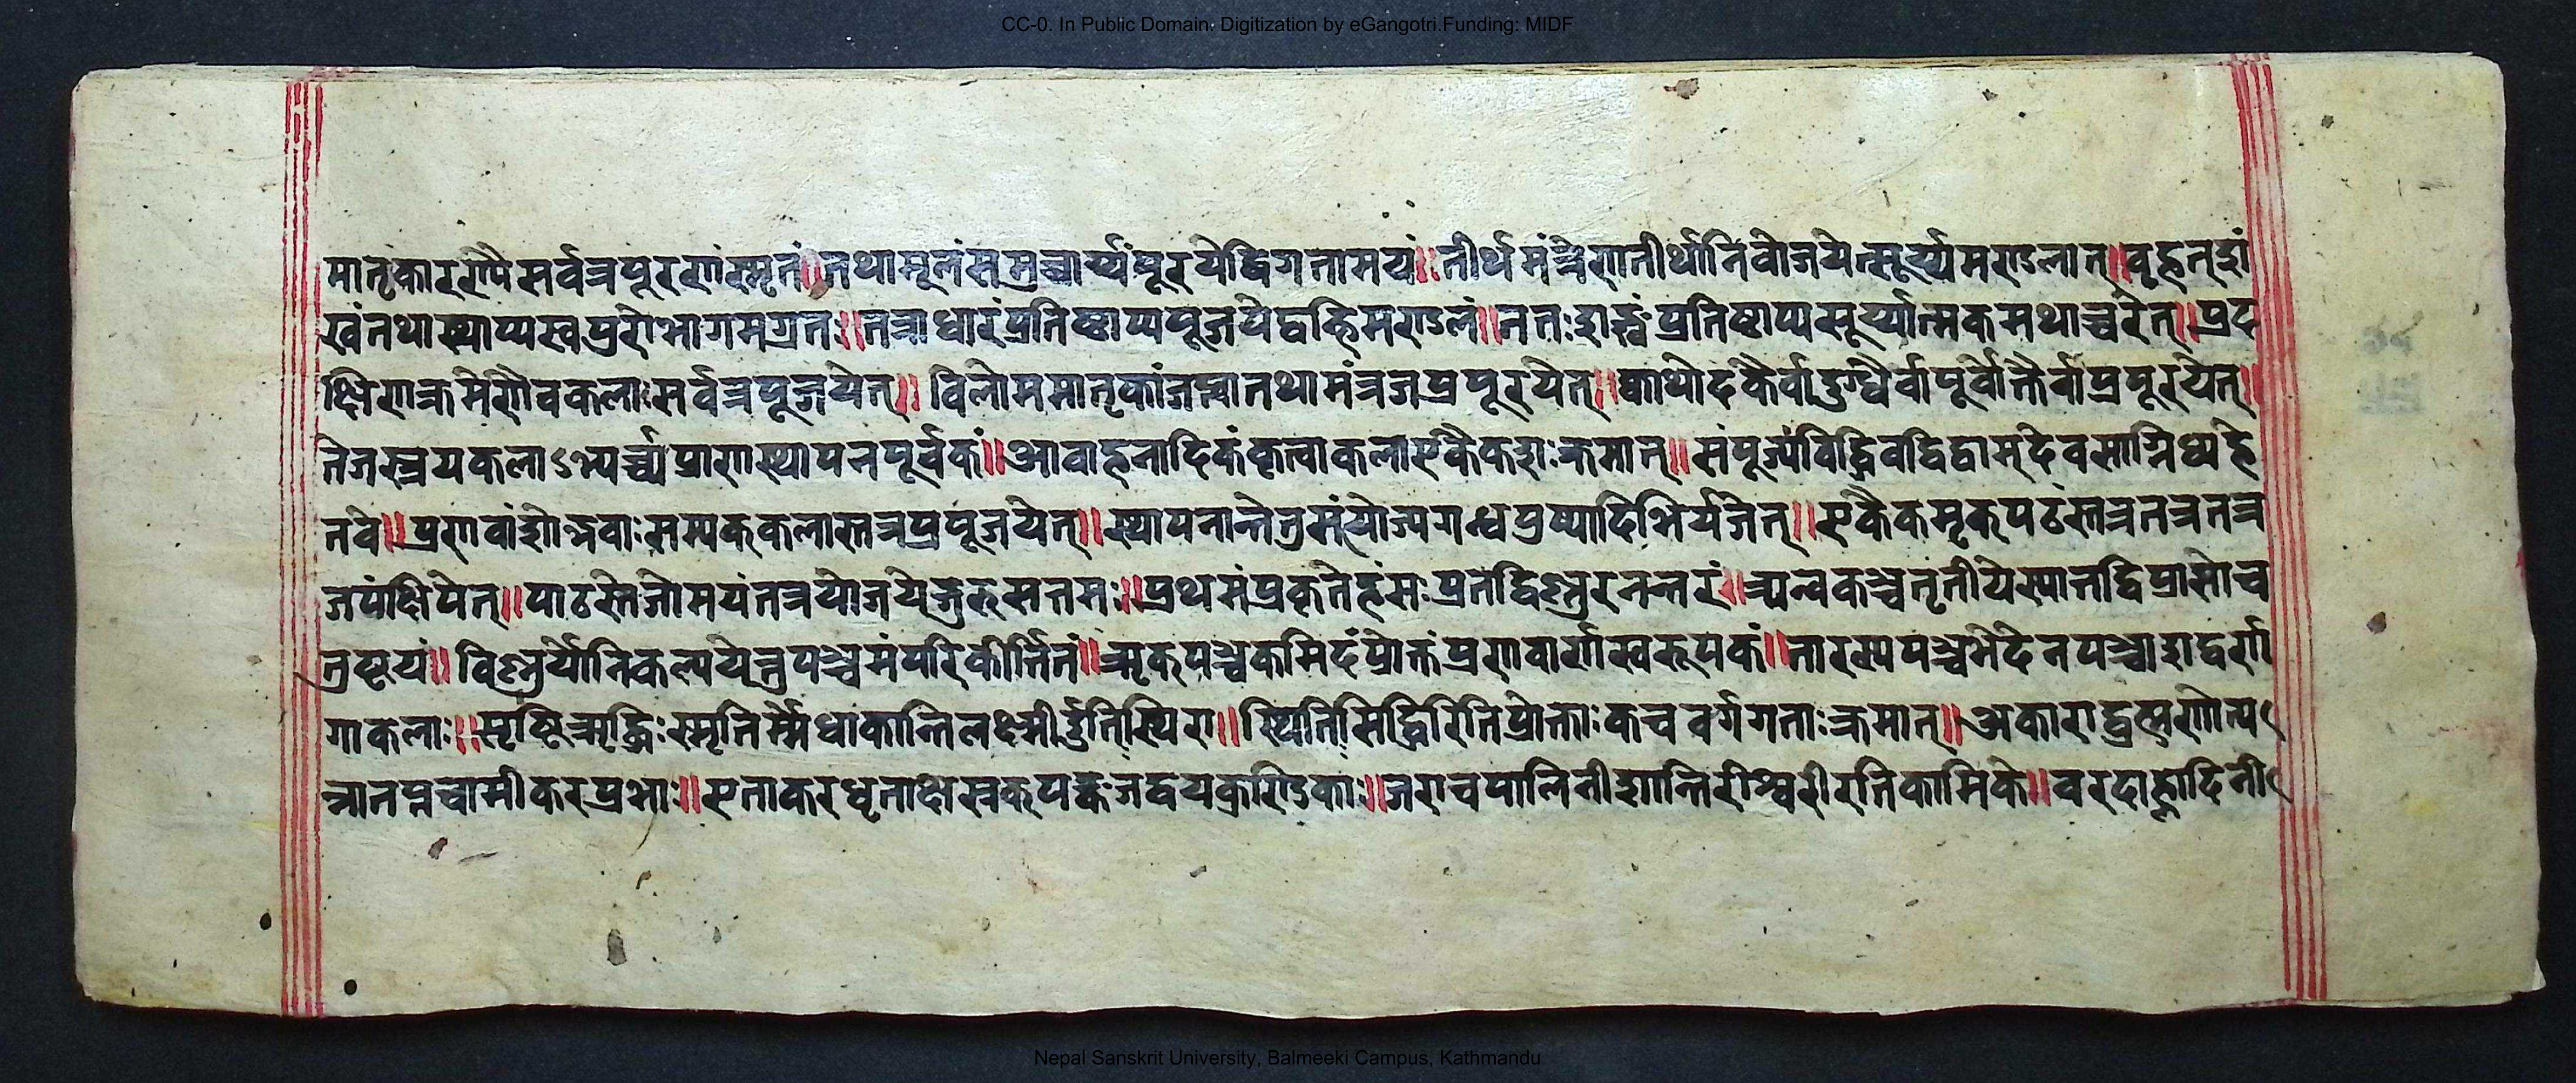 CC-0. In Public Domain. Digitization by eGangotri.Funding: MIDF
मातृकारणोपै सर्वत्रपूरणंस्मृतं॥तथामूलंसमुच्चार्य्यंपूरयेद्विगतामयं॥तीर्थमंत्रेणतीर्थानियोजयेत्सूर्य्यमण्डलात्॥वृहत्शं
खंतथास्थाप्यस्वपुरोभागमग्रतः॥तत्राधारंप्रतिष्ठाप्यपूजयेद्वह्निमण्डलं॥ततःशङ्खंप्रतिष्ठाप्यसूर्य्यात्मकमथाच्चरेत्॥प्रद
क्षिणक्रमेणैवकलाःसर्वत्रपूजयेत्॥विलोममातृकांजप्त्वातथामंत्रजप्रपूरयेत्॥क्वाथोदकैर्वादुग्धैर्वापूर्वोक्तैर्वाप्रपूरयेत्॥
तेजस्त्रयकलाऽभ्यर्च्च्यप्राणस्थापनपूर्वकं॥आवाहनादिकंकृत्वाकलाएकैकशःक्रमात्॥संपूज्यविद्धिवद्विद्वाम्देवसान्निध्यहे
तवे॥प्रणवांशोद्भवाःसम्यक्कलास्तत्रप्रपूजयेत्॥स्थापनान्तेतुसंयोज्यगन्धपुष्पादिभिर्यजेत्॥एकैकमृक्पठंस्तत्रतत्रतत्र
जपंक्षिपेत्॥पाठस्तेजोमयंतत्रयोजयेद्गुरुसत्तमः॥प्रथमंप्रकृतेर्हंसःप्रतद्विष्णुरनन्तरं॥त्र्यम्वकञ्चतृतीयेस्यात्तद्विप्रासोच
तुष्टयं॥विष्णुर्योनिकल्पयेत्तुपञ्चमंपरिकीर्त्तितं॥ऋक्पञ्चकमिदंप्रोक्तंप्रणवार्णस्वरूपकं॥तारस्यपञ्चभेदेनपञ्चाशद्वर्ण
गाकलाः॥सृष्टिऋद्धिःस्मृतिर्म्मेधाकान्तिलक्ष्मीर्द्युतिस्थिरा॥स्थितिसिद्धिरितिप्रोक्ताःकचवर्गगताःक्रमात्॥अकाराद्ब्रह्मणोत्प
न्नातप्तचामीकरप्रभाः॥एताकरधृताक्षस्रक्पङ्कजद्वयकुण्डिकाः॥जराचपालिनीशान्तिरीश्वरीरतिकामिके॥वरदाह्लादिनी
Nepal Sanskrit University, Balmeeki Campus, Kathmandu